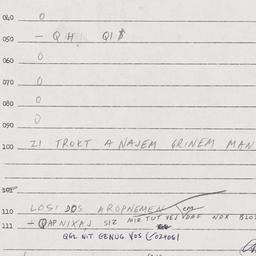 040 0
050 - Q H QI $
060 0
070 0
080 0
090 0
ZI TROKT A NAJEM GRINEM MAN
100
LOSI DOS AROPNEMEN
110
111 - QAPNIXAJ SIZ MIR TUT VEJ NOX BLOZ
QGL NIT GENUG VOS